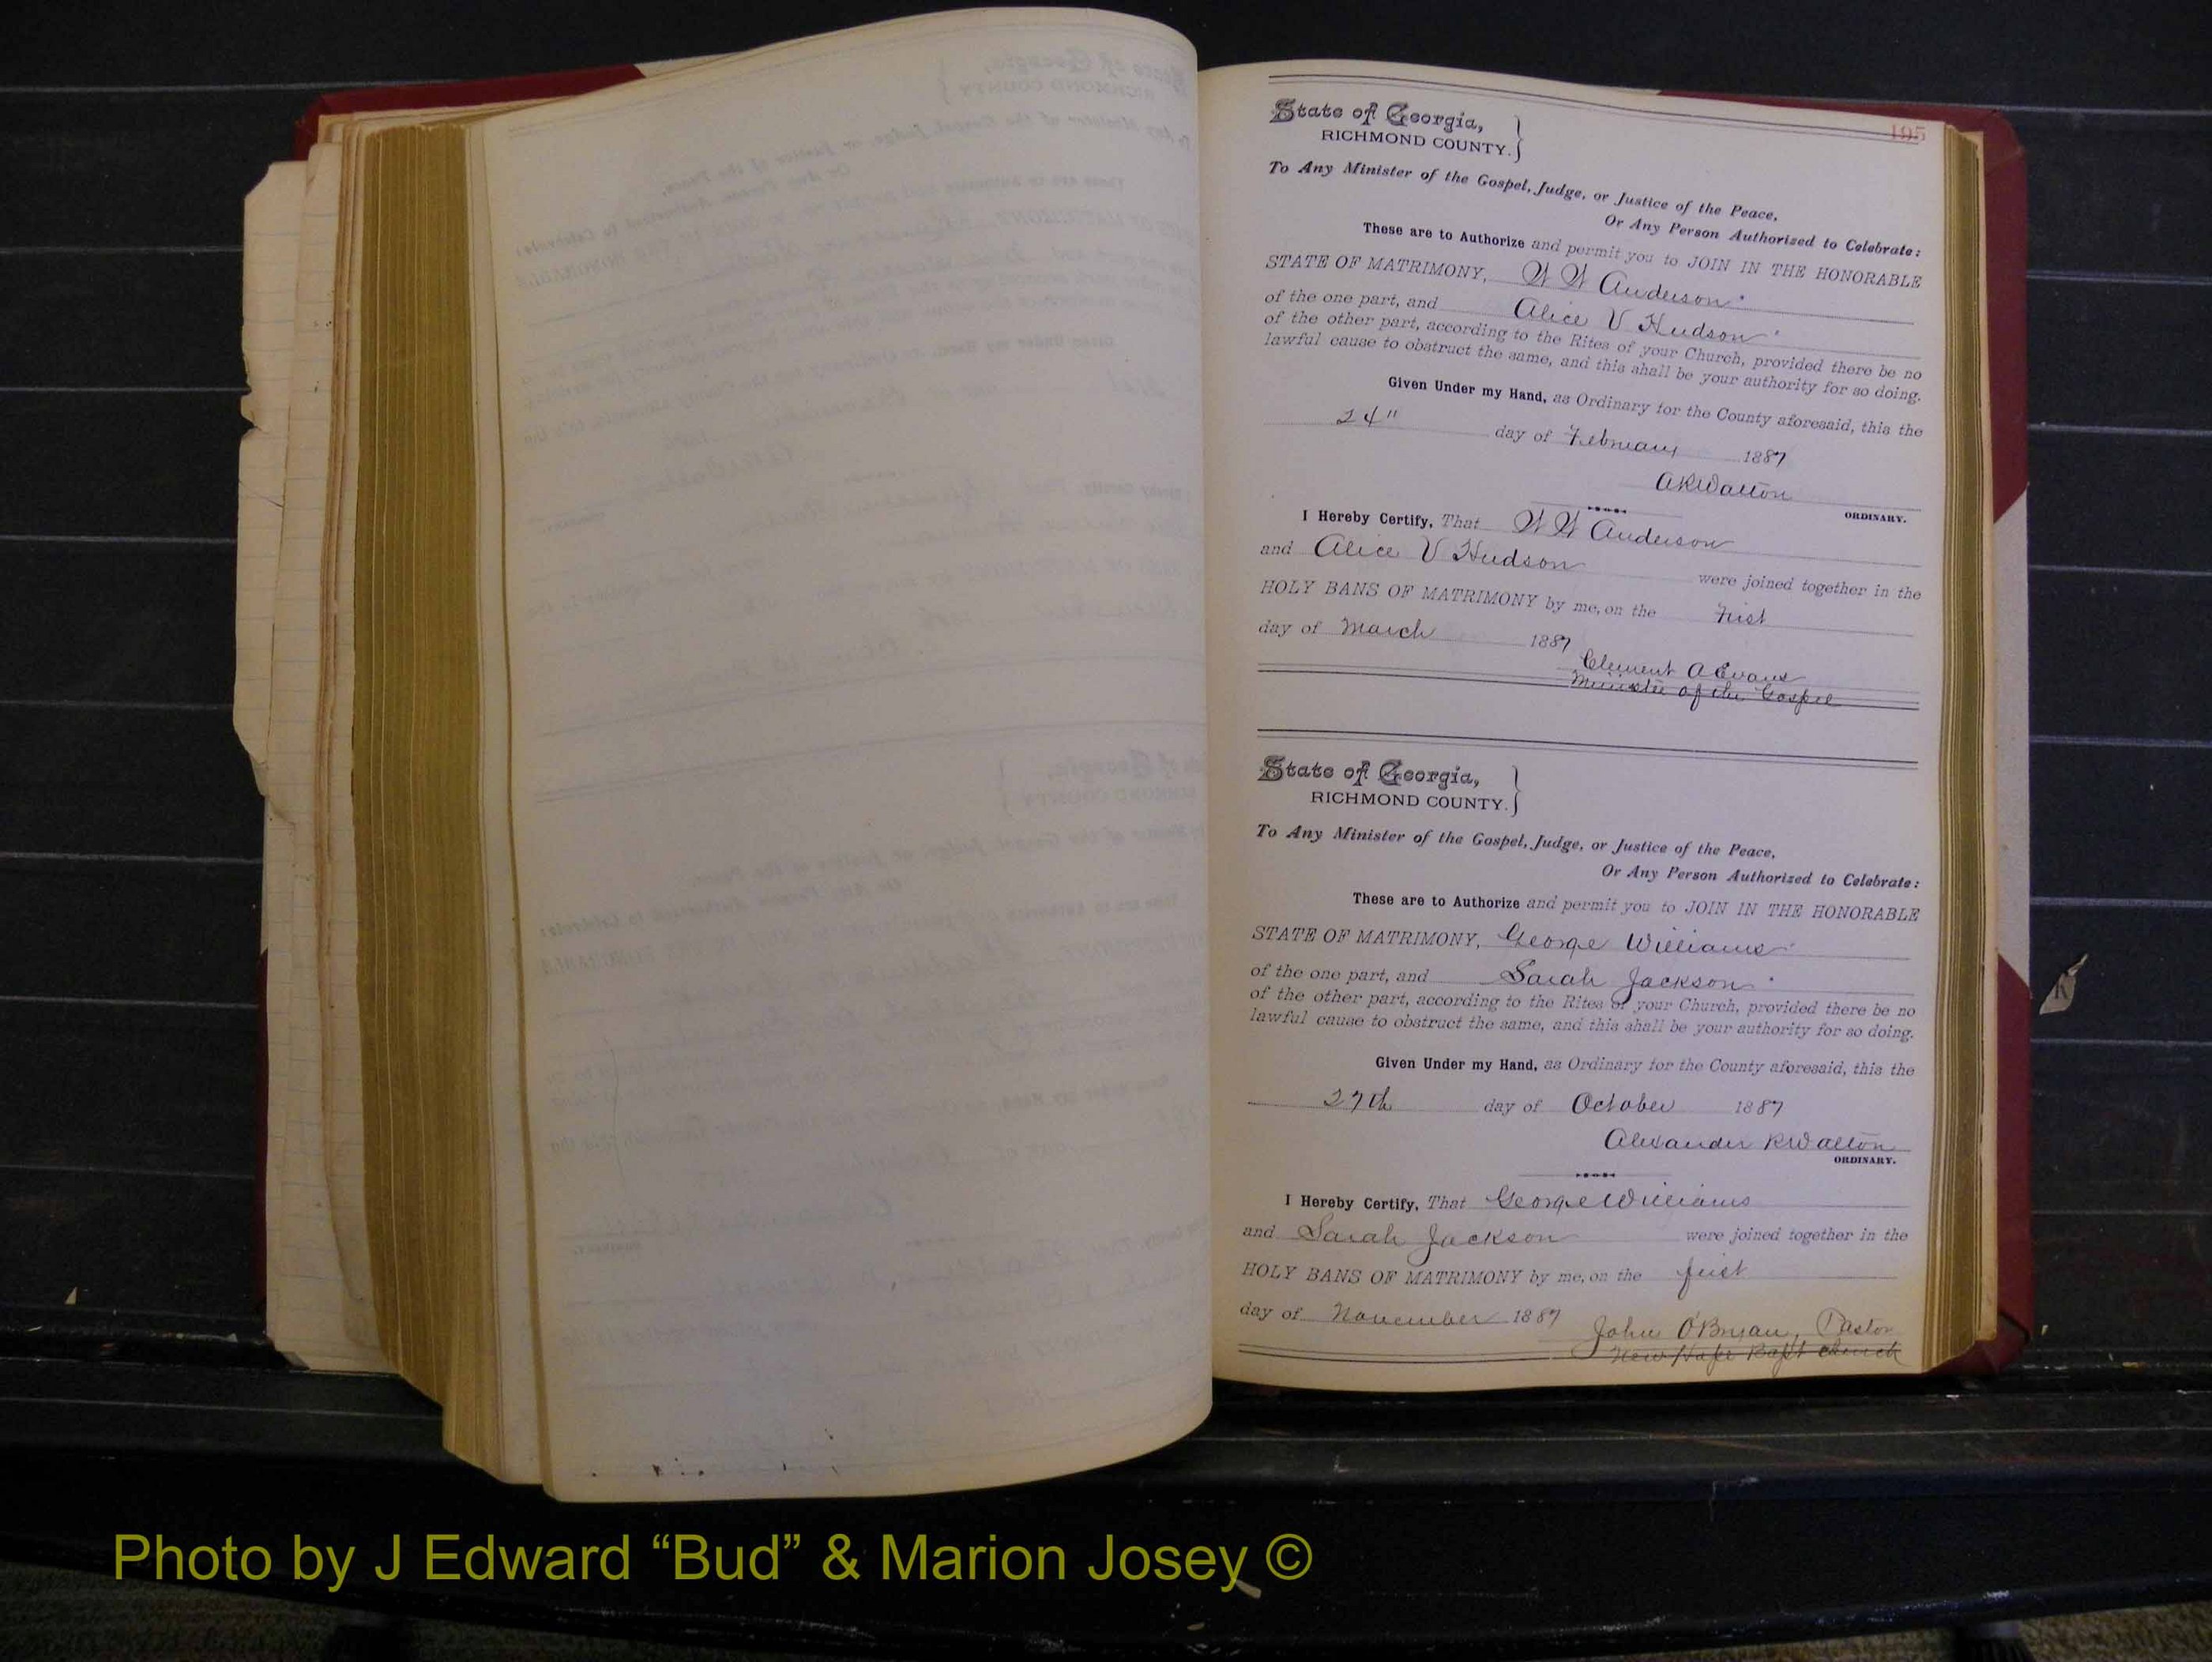 195
State of Georgia,
RICHMOND COUNTY.
To Any Minister of the Gospel, Judge, or Justice of the Peace,
Or Any Person Authorized to Celebrate:
These are to Authorize and permit you to JOIN IN THE HONORABLE
STATE OF MATRIMONY, W W Anderson
of the one part, and Alice V Hudson
of the other part, according to the Rites of your Church, provided there be no
lawful cause to obstruct the same, and this shall be your authority for so doing.
Given Under my Hand, as Ordinary for the County aforesaid, this the
24" day of February 1887
A R Walton
ORDINARY.
I Hereby Certify, That W W Anderson
and Alice V Hudson were joined together in the
HOLY BANS OF MATRIMONY by me, on the First
day of March 1887
Clement A Evans
Minister of the Gospel
State of Georgia,
RICHMOND COUNTY.
To Any Minister of the Gospel, Judge, or Justice of the Peace,
Or Any Person Authorized to Celebrate:
These are to Authorize and permit you to JOIN IN THE HONORABLE
STATE OF MATRIMONY, George Williams
of the one part, and Sarah Jackson
of the other part, according to the Rites of your Church, provided there be no
lawful cause to obstruct the same, and this shall be your authority for so doing.
Given Under my Hand, as Ordinary for the County aforesaid, this the
27th day of October 1887
Alexander R Walton
ORDINARY.
I Hereby Certify, That George Williams
and Sarah Jackson were joined together in the
HOLY BANS OF MATRIMONY by me, on the first
day of November 1887
John O'Bryan, Pastor
New Hope Bapt Church
Photo by J Edward “Bud” & Marion Josey ©